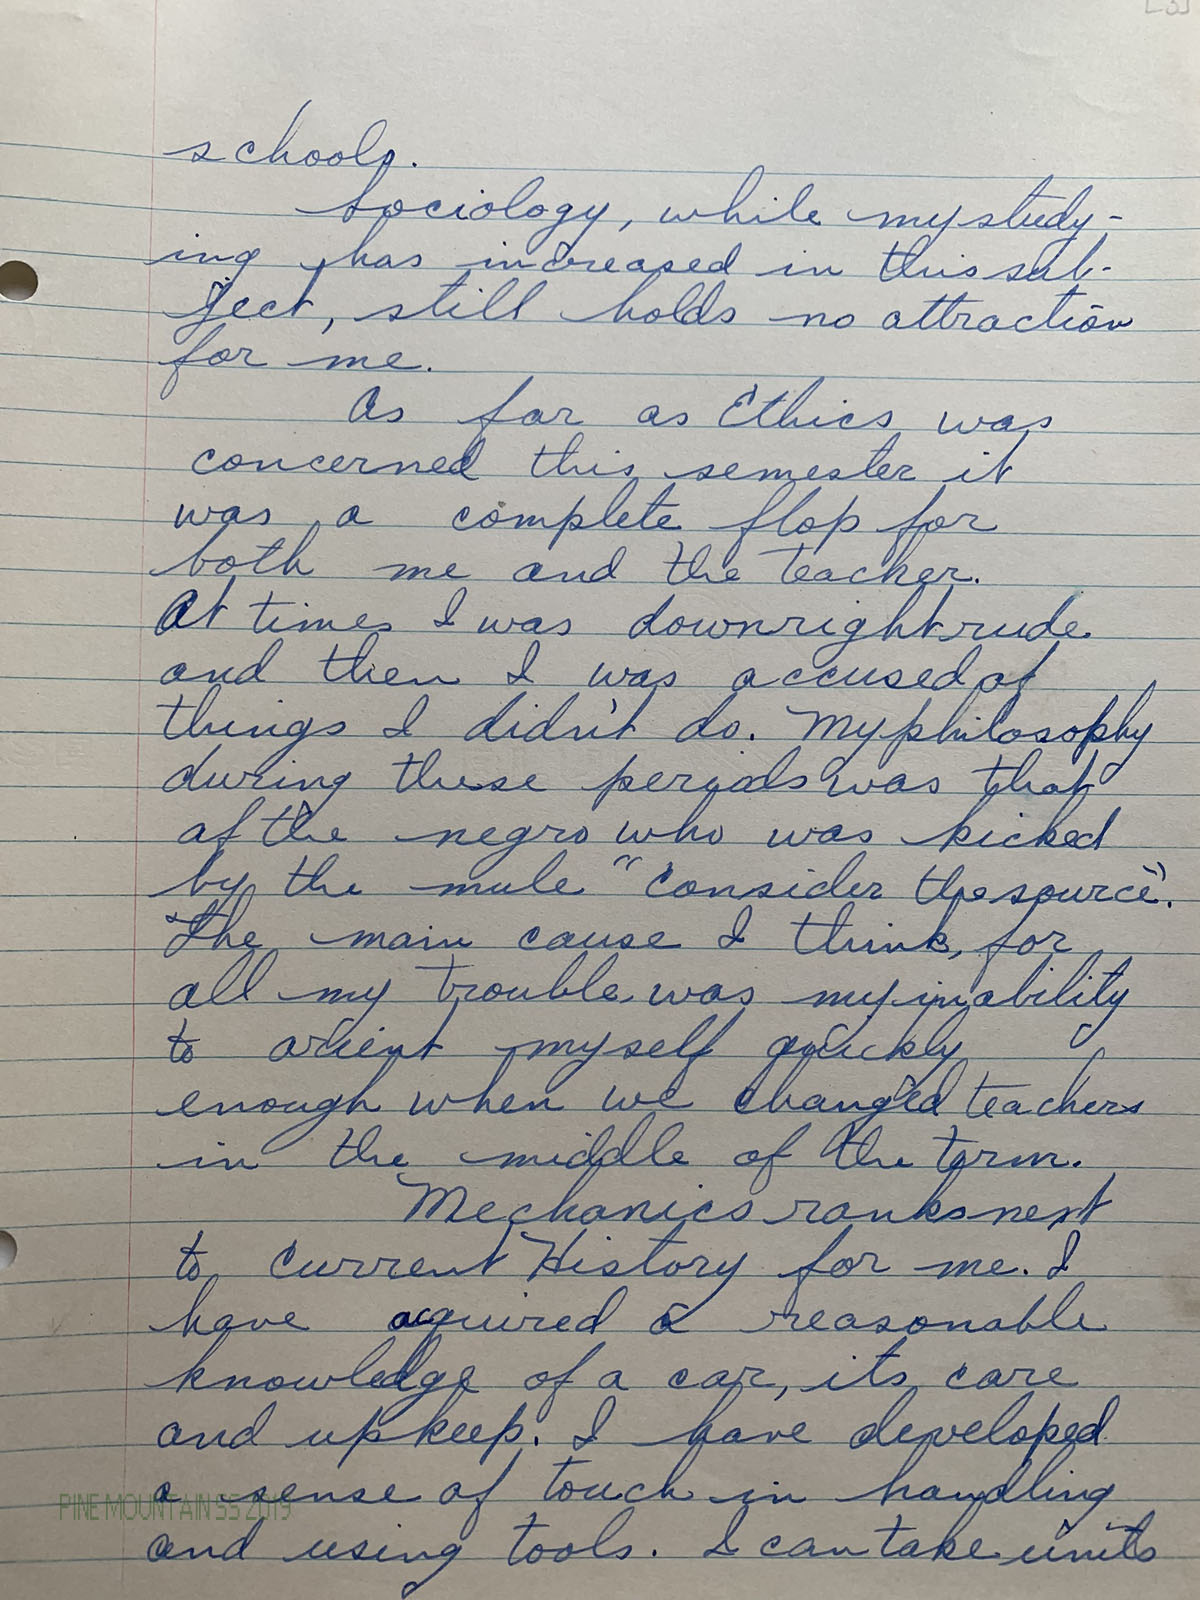 [3]
schools.
Sociology, while my study-
ing has increased in this sub-
ject, still holds no attraction
for me.
As far as Ethics was
concerned this semester it
was a complete flop for
both me and the teacher.
At times I was downright rude
and then I was accused of
things I didn't do. My philosophy
during these periods was that
of the negro who was kicked
by the mule "consider the source".
The main cause I think, for
all my trouble was my inability
to orient myself quickly
enough when we changed teachers
in the middle of the term.
Mechanics ranks next
to Current History for me. I
have acquired a reasonable
knowledge of a car, its care
and upkeep. I have developed
a sense of touch in handling
PINE MOUNTAIN SS 2019
and using tools. I can take units